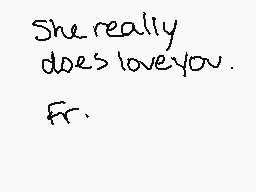 She really
does love you.
Fr.